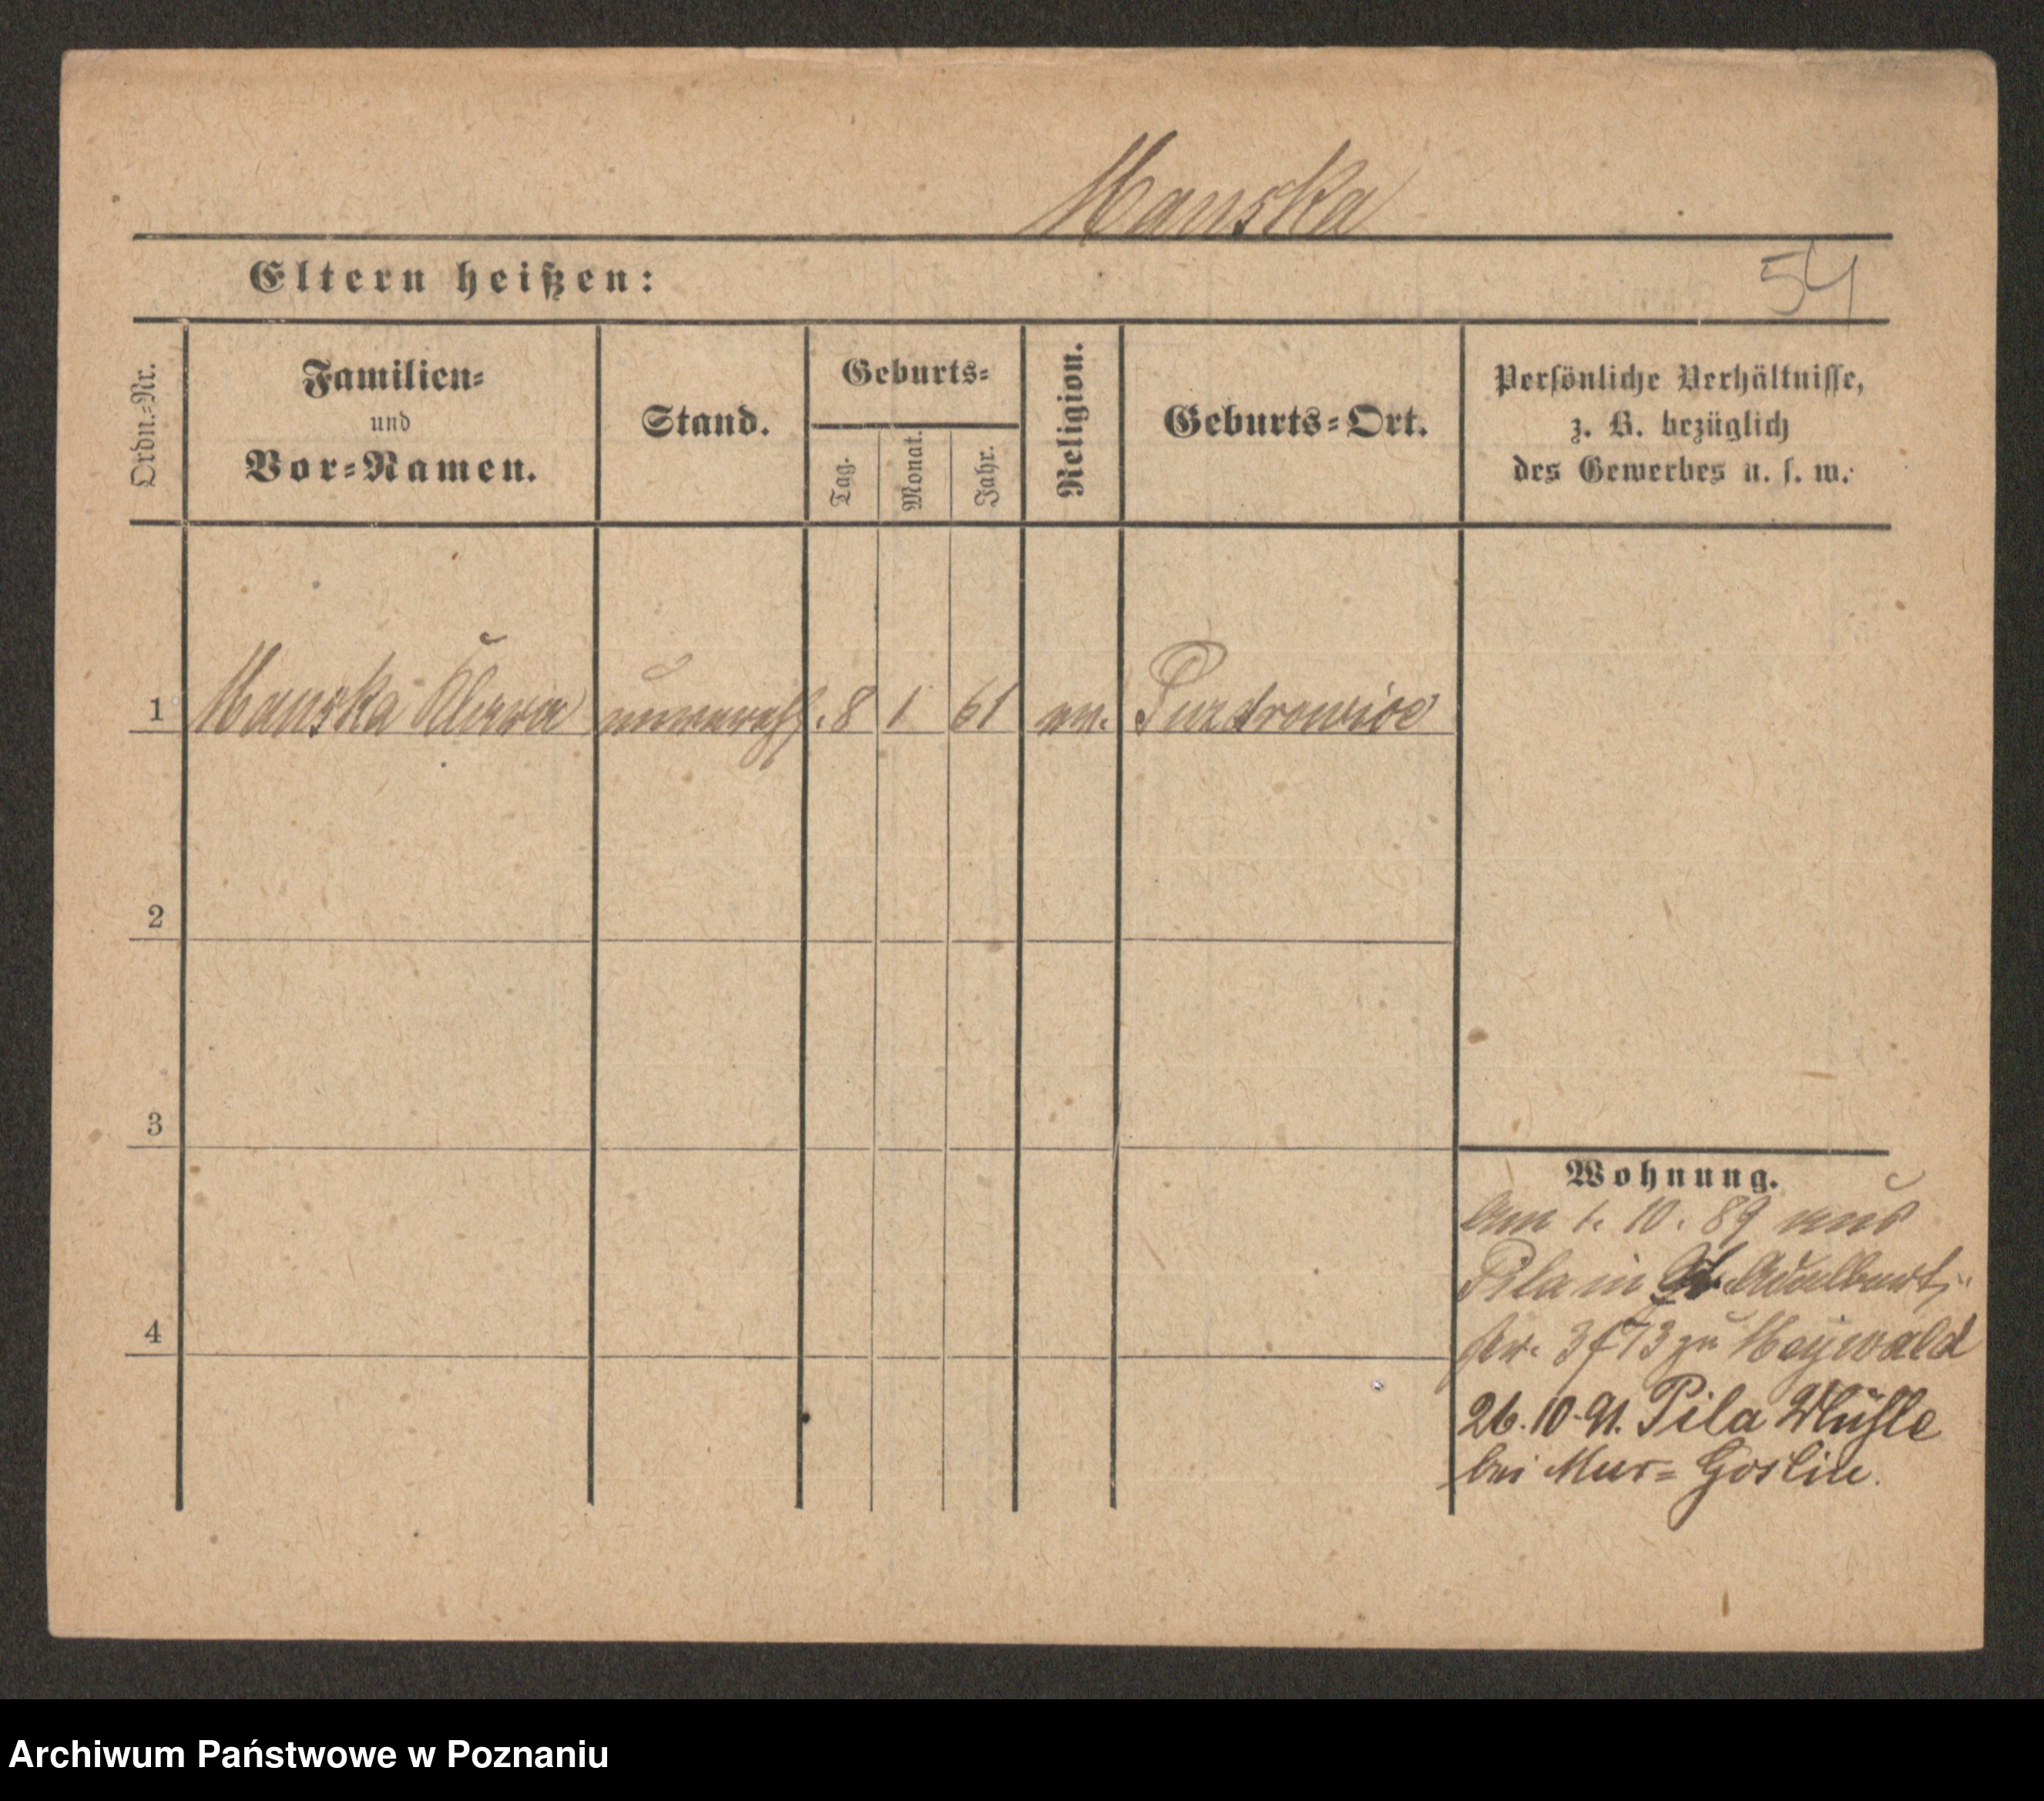 Manska
Eltern heißen:
54
Ordn.=Nr.
Familien=
und
Vor=Namen.
Stand.
Geburts=
Tag.
Monat.
Jahr.
Religion.
Geburts=Ort.
Persönliche Verhältnisse,
z. B. bezüglich
des Gewerbes u. s. w.
1 Manska unvereh. 8 1 61 ev.
2
3
4
Wohnung.
am 1. 10. 89 aus
Pila in St. Adalbert,
str. 3 f 73 zu Heywald
26. 10. 91. Pila Mühle
bei Mur= Goslin.
Archiwum Państwowe w Poznaniu